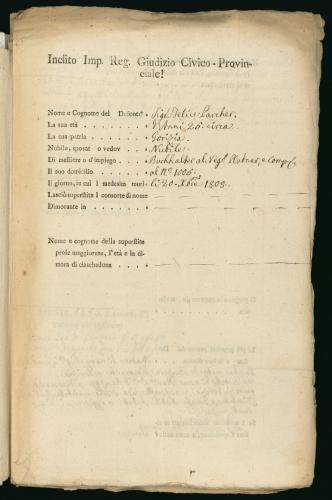 Inclito Imp. Reg. Giudizio Civico-Provin-
ciale!
Nome e Cognome del Defonto - Sigr Felice Larcher.
La sua età . . . . . . . . d'Anni 25. circa.
La sua patria . . . . . . . Gorizia.
Nubile, sposat o vedov . . . Nubile.
Di mestiere o d'impiego . . . Buchhalter al Negl e Comp.
Il suo domicilio . . . . . . al No 1006.
Il giorno, in cui l medesim morì li 20. Xbre 1802.
Lasciò superstite l consorte di nome
Dimorante in . . . . . .
Nome e cognome della superstite
prole maggiorene, l'età e la di-
mora di ciascheduna . . . .